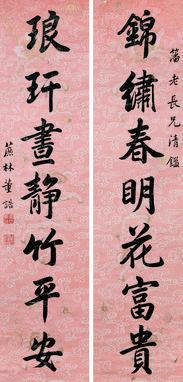 藩老長兄清鑑
錦繡春明花富貴
琅玕晝靜竹平安
蔗林董誥